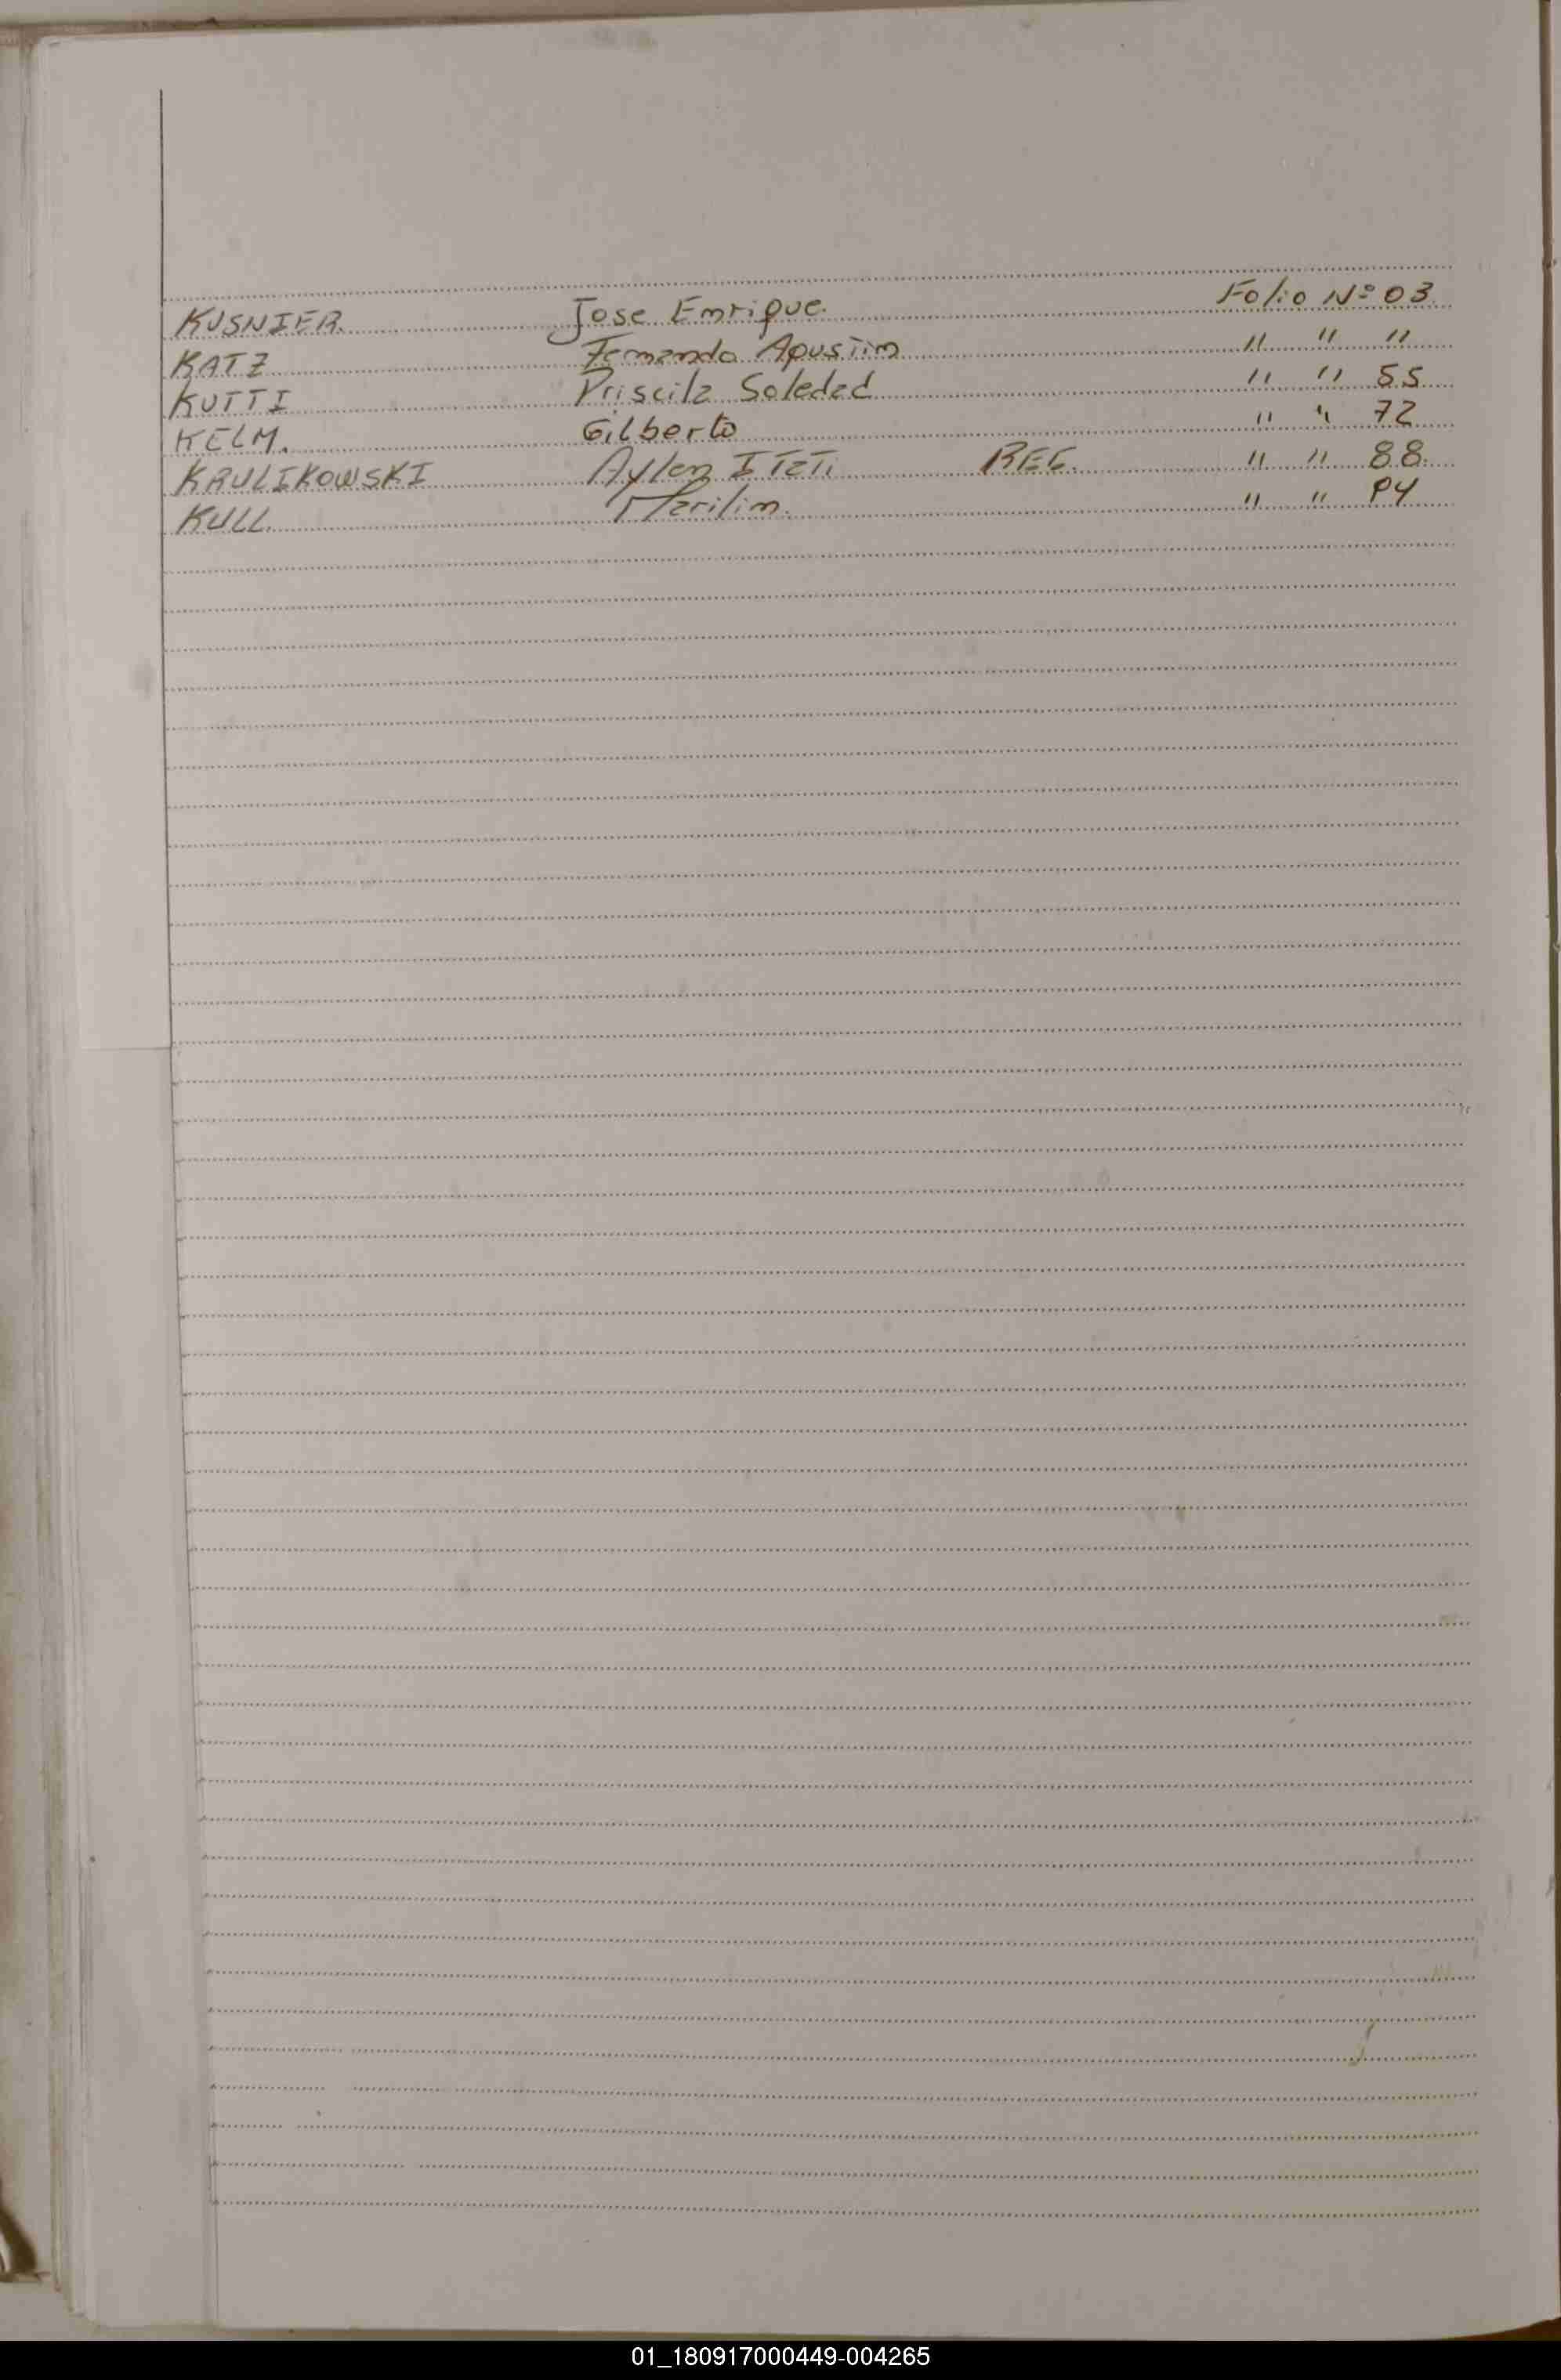 KUSNIER. Jose Enrique. Folio Nº 03
KATZ Fernando Agustin " " "
KUTTI Priscila Soledad " " 55
KELM. Gilberto " " 72
KRULIKOWSKI Aylen Itati REC. " " 88
KULL. Marilin. " " 94
01_180917000449-004265